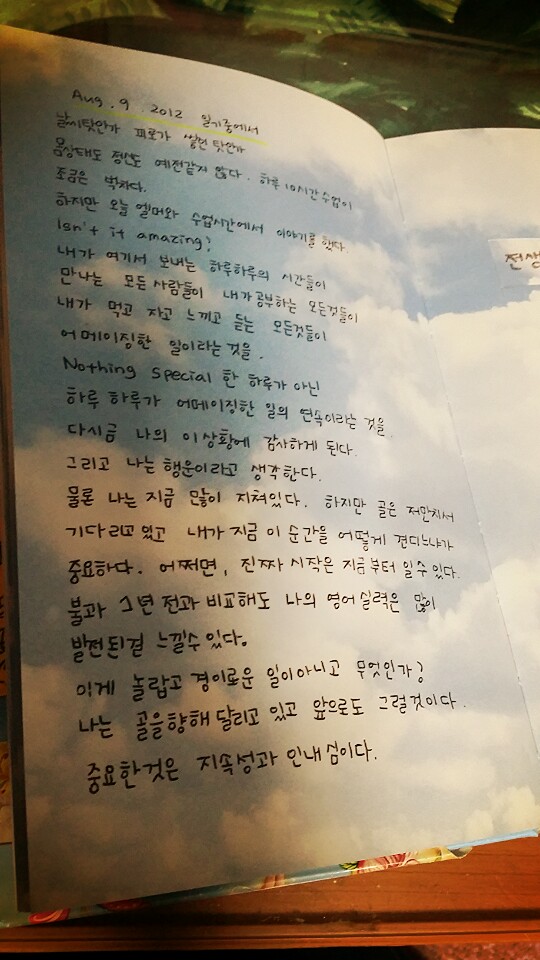 Aug. 9. 2012 일기중에서
날씨탓인가 피로가 쌓인 탓인가
몸상태도 정신도 예전같지 않다. 하루 10시간 수업이
조금은 벅차다.
하지만 오늘 엘머와 수업시간에서 이야기를 했다.
Isn't it amazing?
내가 여기서 보내는 하루하루의 시간들이
만나는 모든 사람들이 내가 공부하는 모든것들이
내가 먹고 자고 느끼고 듣는 모든것들이
어메이징한 일이라는 것을.
Nothing special 한 하루가 아닌
하루 하루가 어메이징한 일의 연속이라는 것을.
다시금 나의 이 상황에 감사하게 된다.
그리고 나는 행운이라고 생각한다.
물론 나는 지금 많이 지쳐있다. 하지만 골은 저만치서
기다리고 있고 내가 지금 이 순간을 어떻게 견디느냐가
중요하다. 어쩌면, 진짜 시작은 지금부터 일 수 있다.
불과 1년 전과 비교해도 나의 영어 실력은 많이
발전된걸 느낄수 있다.
이게 놀랍고 경이로운 일이 아니고 무엇인가?
나는 골을 향해 달리고 있고 앞으로도 그럴것이다.
중요한것은 지속성과 인내심이다.
전생